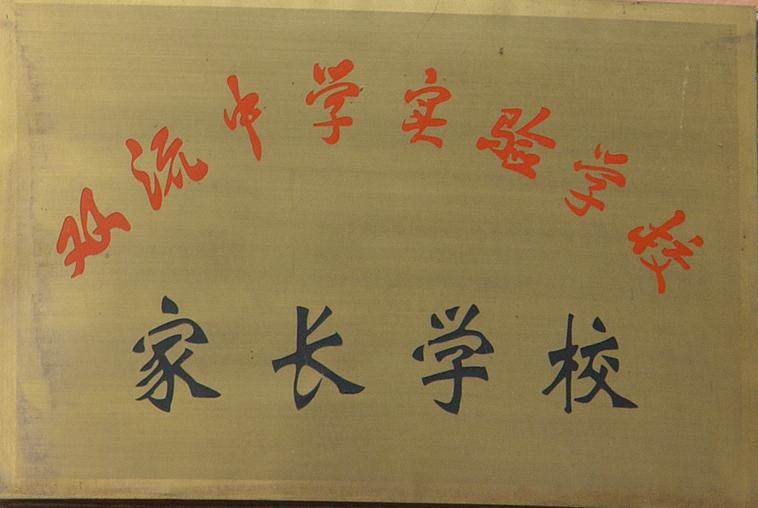 双流中学实验学校
家长学校